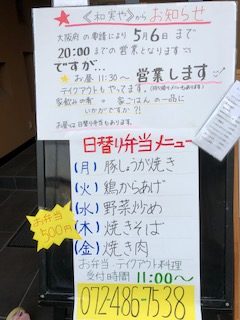 《和実や》からお知らせ
大阪府の要請により5月6日まで
20:00までの営業となります
ですが…
お昼11:30〜営業します
テイクアウトもやってます。
家飲みの肴や昼ごはんの一品に
いかがですか?!
お昼は日替り弁当もあります。
日替り弁当メニュー
(月)豚しょうが焼き
(火)鶏からあげ
(水)野菜炒め
(木)焼きそば
(金)焼き肉
お弁当
500円
お弁当・テイクアウト料理
受付時間11:00〜
072-486-7538